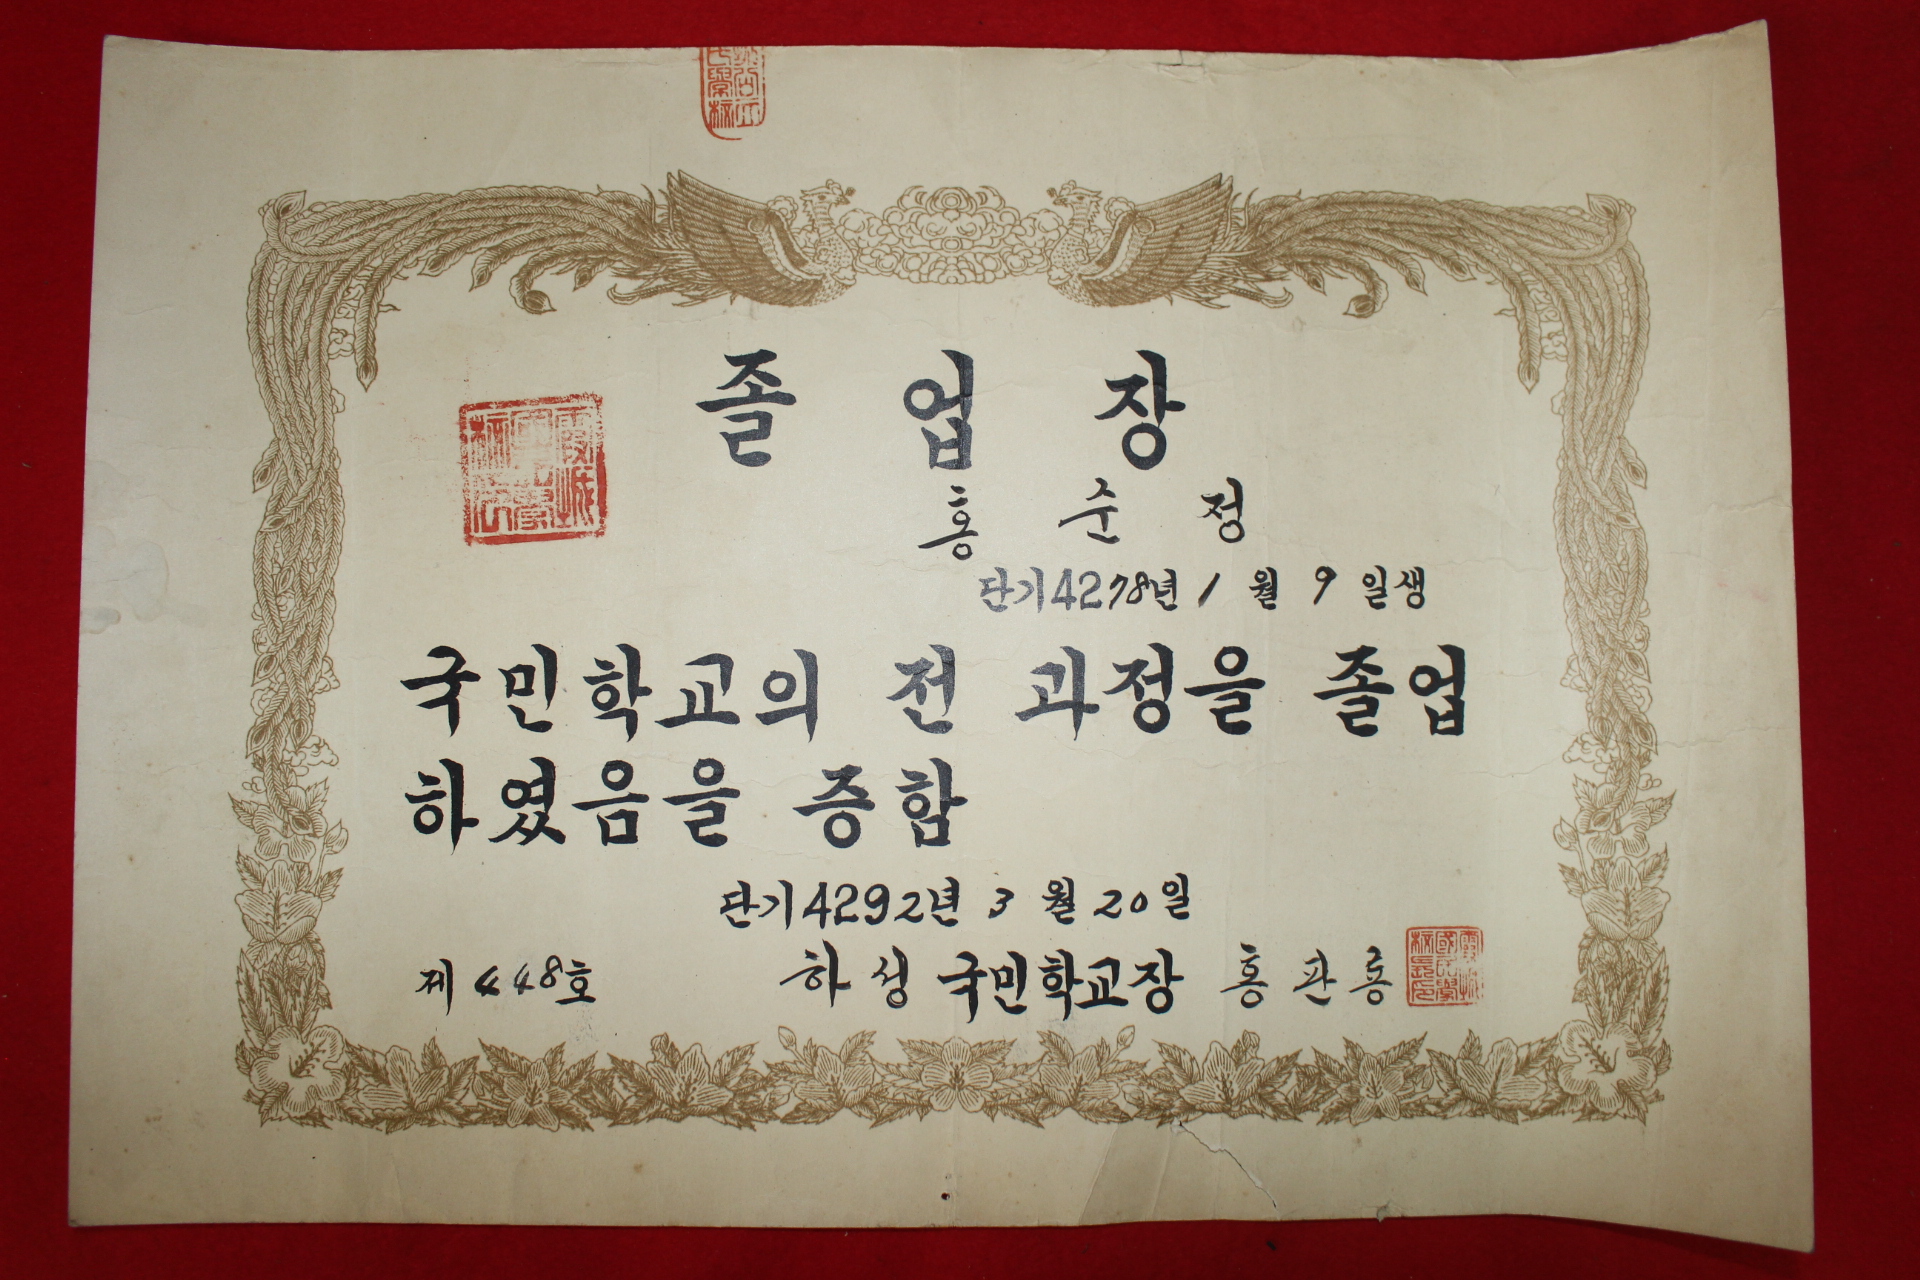 졸업장
홍순정
단기4278년 1월 9일생
국민학교의 전 과정을 졸업
하였음을 증함
단기4292년 3월 20일
제448호
하성 국민학교장 홍관룡